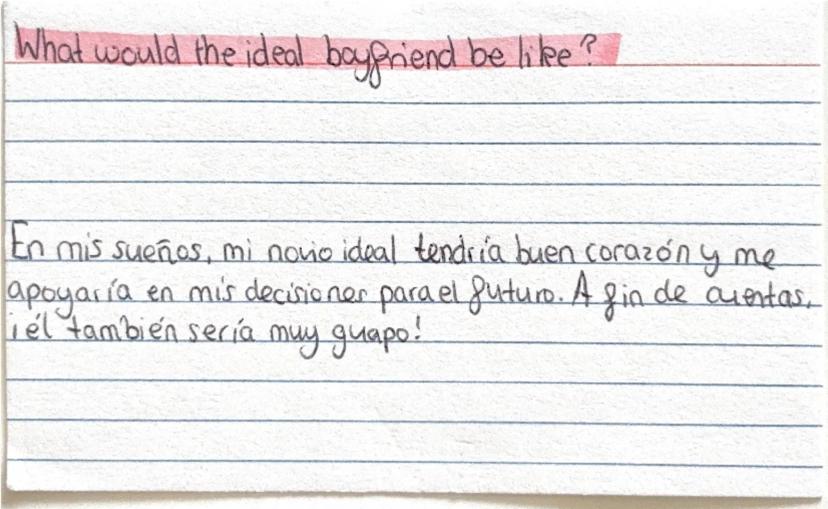 What would the ideal boyfriend be like?
En mis sueños, mi novio ideal tendría buen corazón y me
apoyaría en mis decisiones para el futuro. A fin de cuentas,
¡él también sería muy guapo!